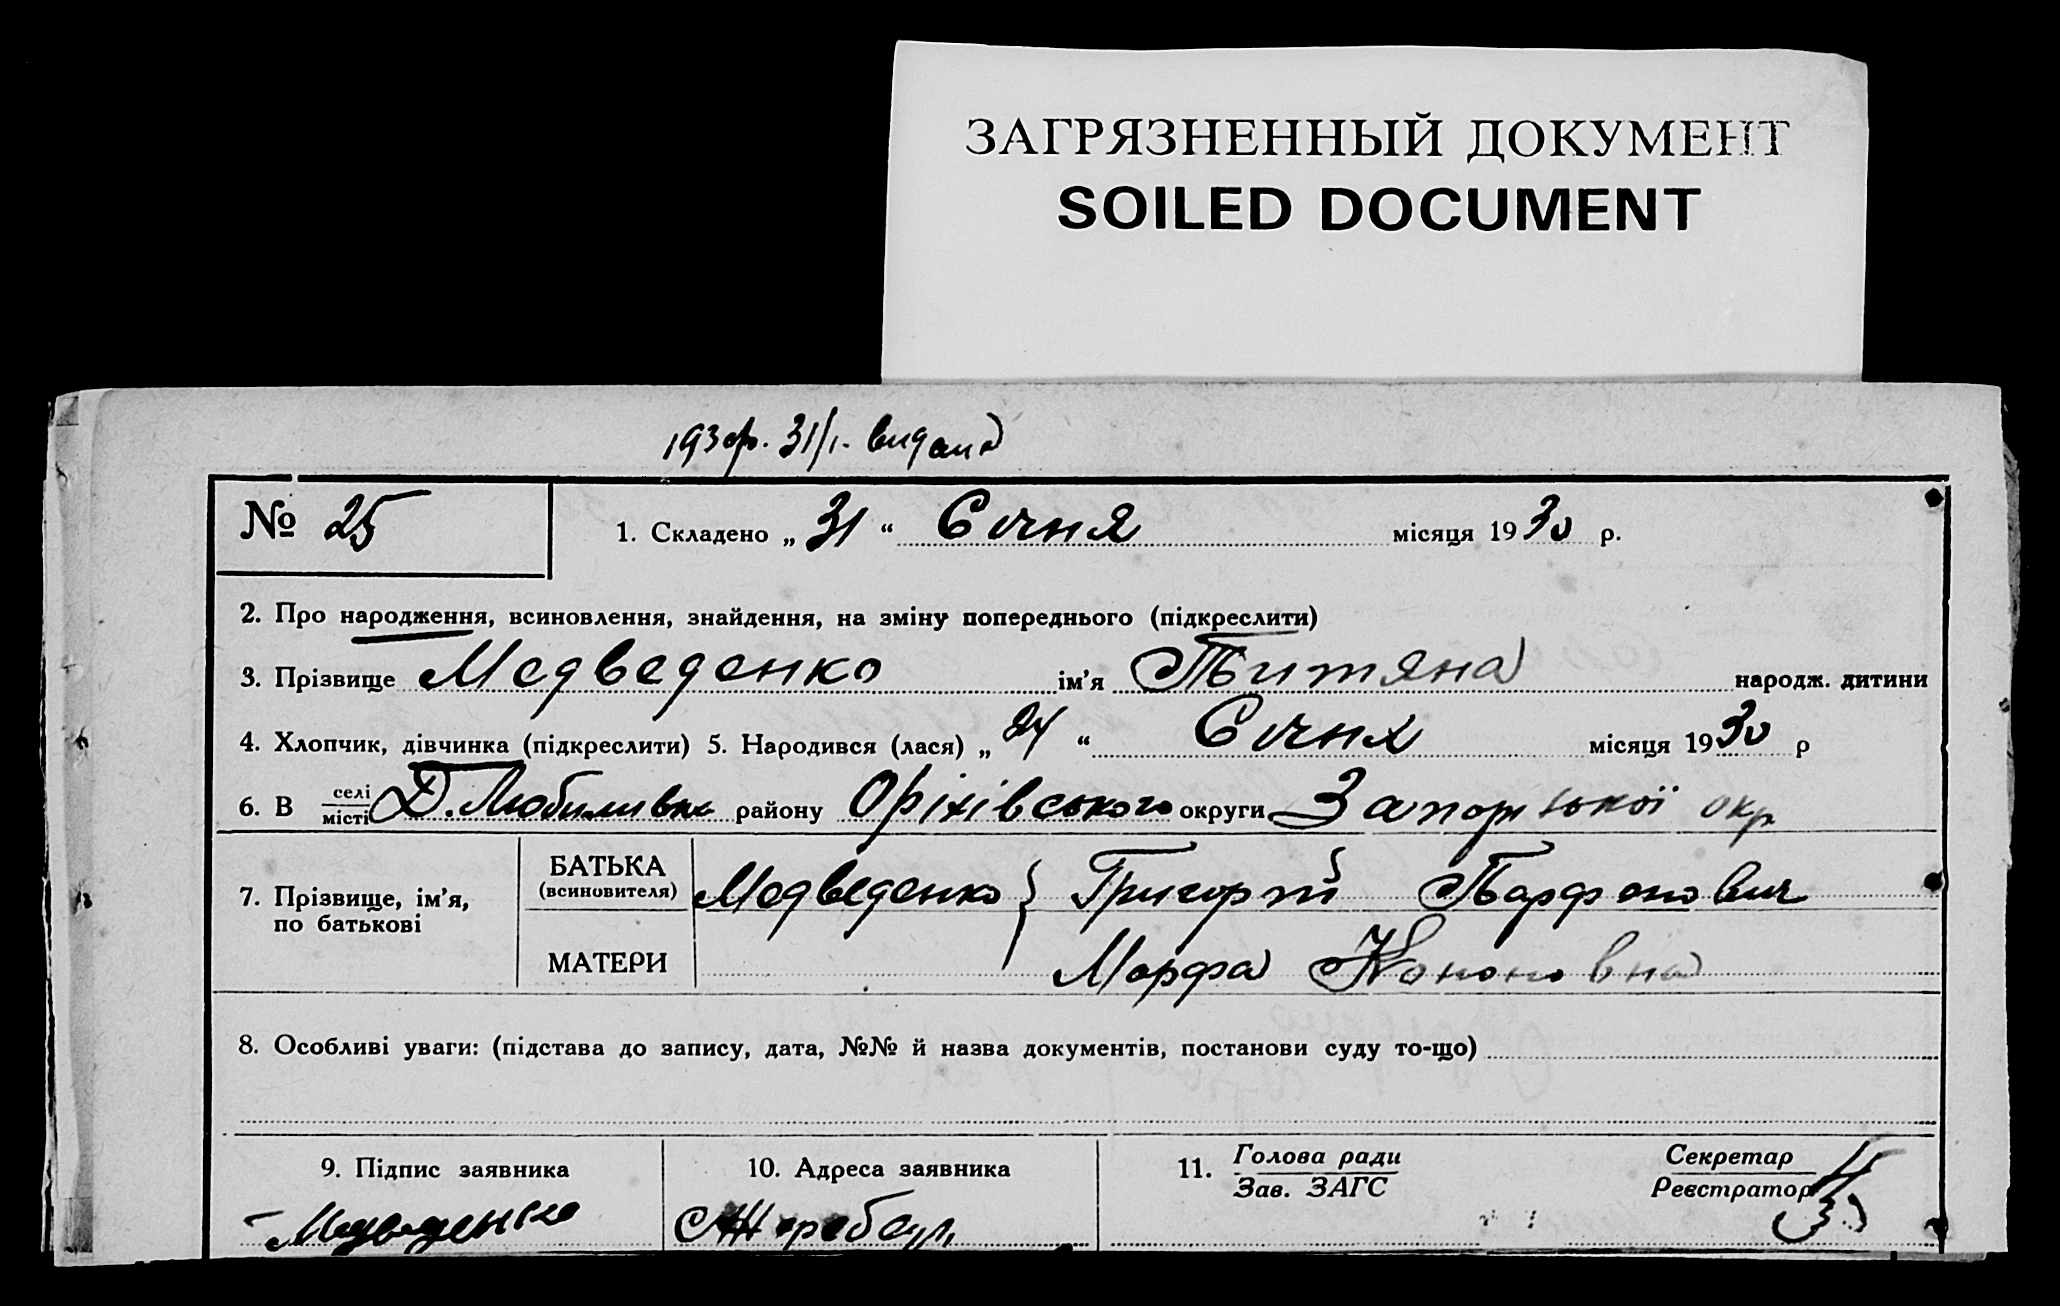 ЗАГРЯЗНЕННЫЙ ДОКУМЕНТ
SOILED DOCUMENT
1930р. 31/I. видана
№ 25
1. Складено „ 31 “ Січня місяця 1930 р.
2. Про народження, всиновлення, знайдення, на зміну попереднього (підкреслити)
3. Прізвище Медведенко ім’я Титяна народж. дитини
4. Хлопчик, дівчинка (підкреслити) 5. Народився (лася) „ 24 “ Січня місяця 1930 р
6. В селі місті Д. Любимівка району Оріхівського округи Запорізької окр
7. Прізвище, ім’я, по батькові
БАТЬКА (всиновителя) Медведенко Григорій Парфенович
МАТЕРИ Марфа Кононовна
8. Особливі уваги: (підстава до запису, дата, №№ й назва документів, постанови суду то-що)
9. Підпис заявника 10. Адреса заявника 11. Голова ради Зав. ЗАГС Секретар Реєстратор
Медведенко